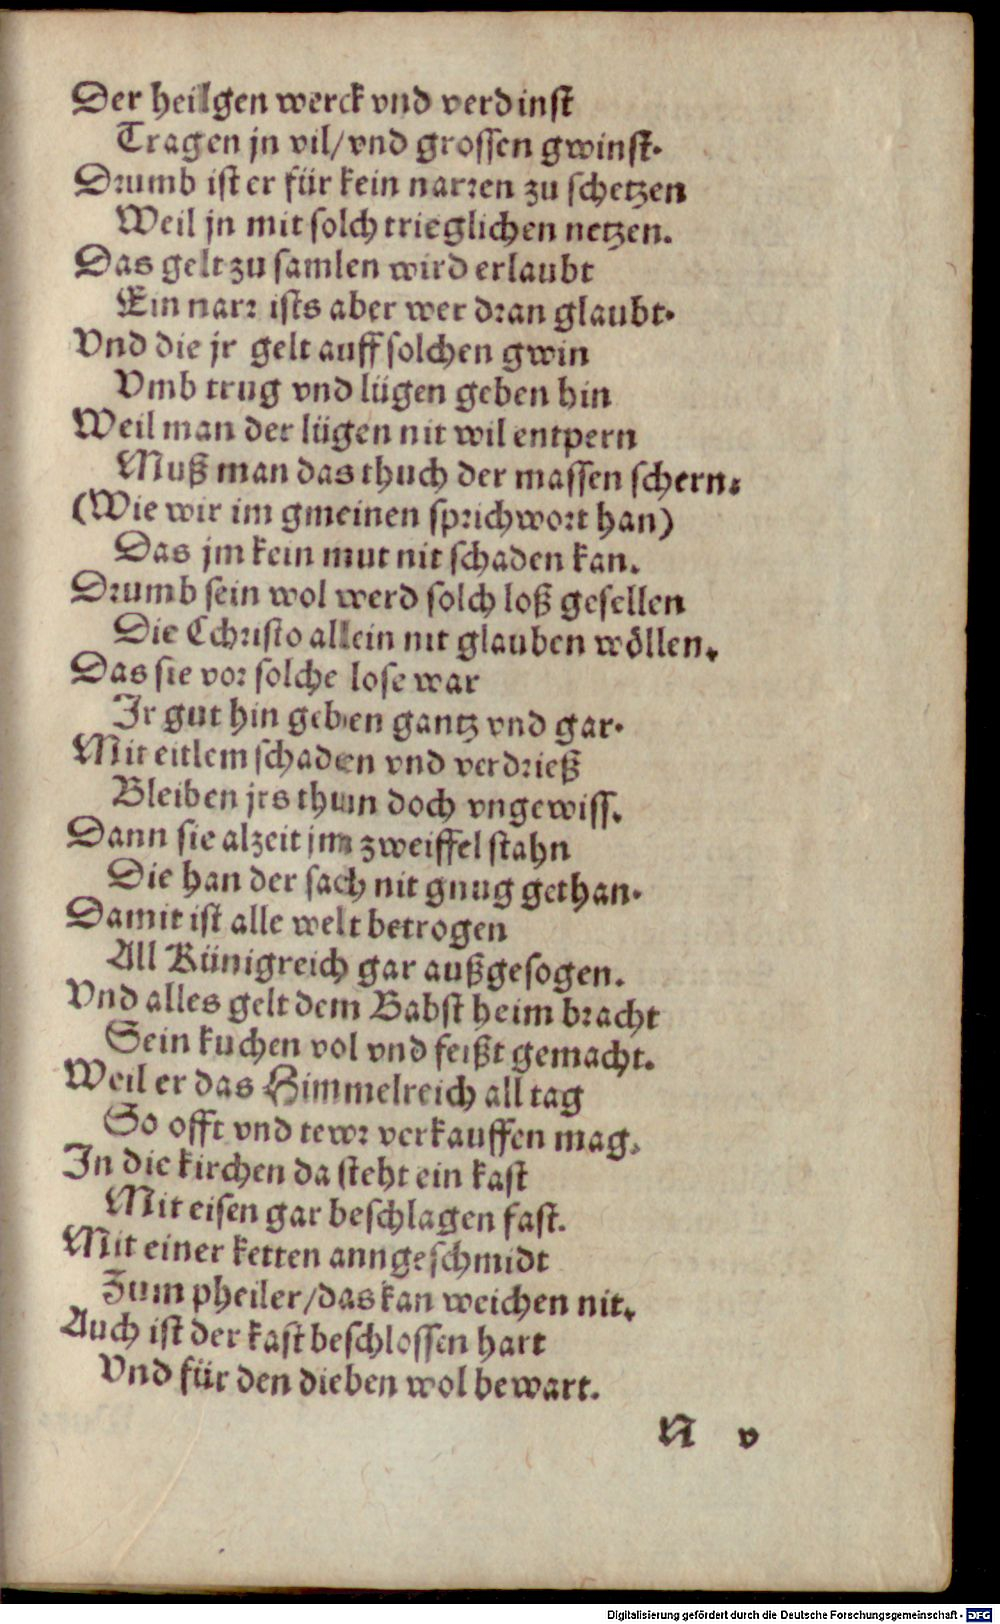 Der heilgen werck vnd verdinst
Tragen jn vil/vnd grossen gwinst.
Drumb ist er für kein narren zu schetzen
Weil jn mit solch trieglichen netzen.
Das gelt zu samlen wird erlaubt
Ein narr ists aber wer dran glaubt.
Vnd die jr gelt auff solchen gwin
Vmb trug vnd lügen geben hin
Weil man der lügen nit wil entpern
Muß man das thuch der massen schern.
(Wie wir im gmeinen sprichwort han)
Das jm kein mut nit schaden kan.
Drumb sein wol werd solch loß gesellen
Die Cchristo allein nit glauben wöllen.
Das sie vor solche lose war
Jr gut hin geben gantz vnd gar.
Mit eitlem schaden vnd verdrieß
Bleiben jrs thun doch vngewiss.
Dann sie alzeit jm zweiffel stahn
Die han der sach nit gnug gethan.
Damit ist alle welt betrogen
All Künigreich gar außgesogen.
Vnd alles gelt dem Babst heim bracht
Sein kuchen vol vnd feißt gemacht.
Weil er das Himmelreich all tag
So offt vnd tewr verkauffen mag.
In die kirchen da steht ein kast
Mit eisen gar beschlagen fast.
Mit einer ketten anngeschmidt
Zum pheiler/das kan weichen nit.
Auch ist der kast beschlossen hart
Vnd für den dieben wol bewart.
N v
Digitalisierung gefördert durch die Deutsche Forschungsgemeinschaft - DFG